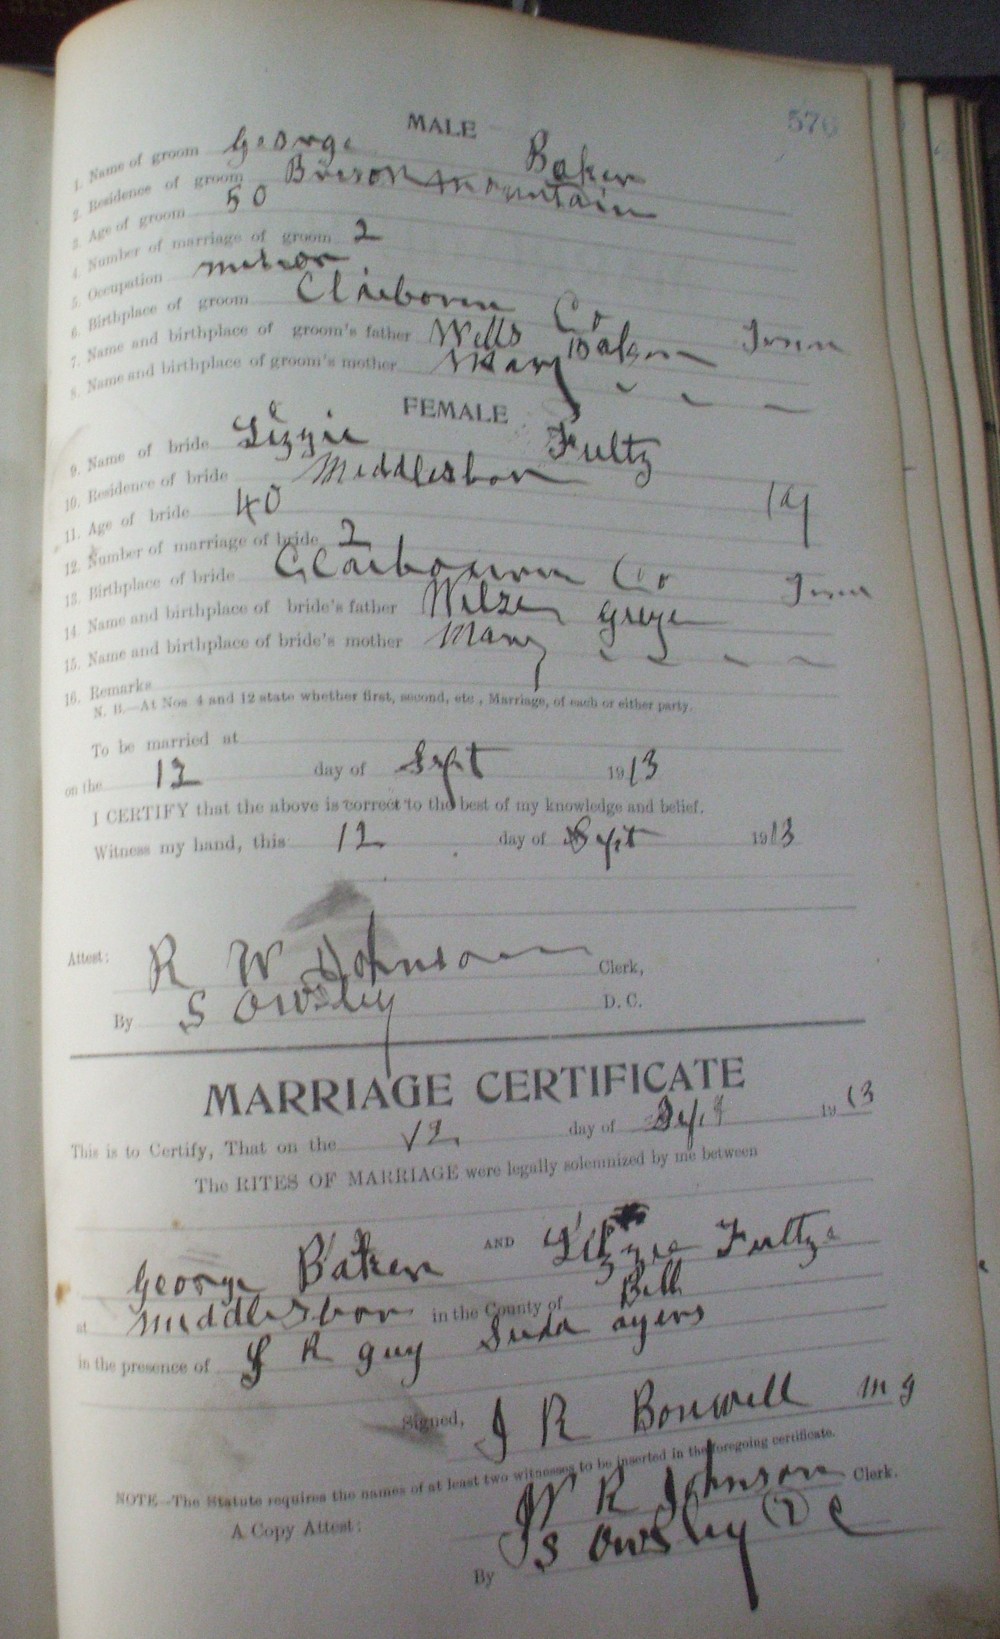 MALE 576
1. Name of groom George Baker
2. Residence of groom Bryson mountain
3. Age of groom 50
4. Number of marriage of groom 2
5. Occupation
6. Birthplace of groom Claiborne Co Tenn
7. Name and birthplace of groom's father Wells Baker
8. Name and birthplace of groom's mother Mary " " "
FEMALE
9. Name of bride Lizzie Fultz
10. Residence of bride Middlesbor Ky
11. Age of bride 40
12. Number of marriage of bride 2
13. Birthplace of bride Claibourn Co Tenn
14. Name and birthplace of bride's father
15. Name and birthplace of bride's mother Mary " " " "
16. Remarks
N. B.—At Nos 4 and 12 state whether first, second, etc , Marriage, of each or either party.
To be married at
on the 12 day of Sept 1913
I CERTIFY that the above is correct to the best of my knowledge and belief.
Witness my hand, this 12 day of Sept 1913
Attest: R W Johnson Clerk,
By S Owsley D. C.
MARRIAGE CERTIFICATE
This is to Certify, That on the 12 day of Sept 1913
The RITES OF MARRIAGE were legally solemnized by me between
George Baker AND Lizzie Fultz
at Middlesbor in the County of Bell
in the presence of R guy Suda ayers
Signed, J R Bonwell m g
NOTE—The Statute requires the names of at least two witnesses to be inserted in the foregoing certificate.
A Copy Attest: W R Johnson Clerk.
By S Owsley D C